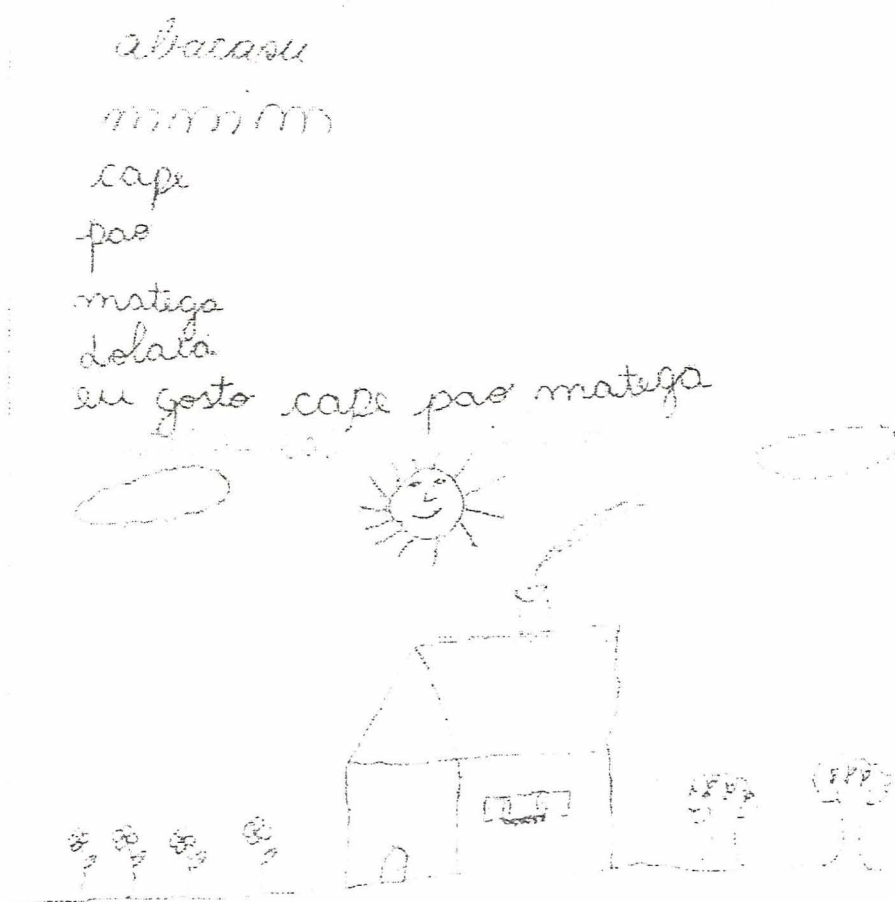 abacasu
cape
pao
matega
eu gosto cape pao matega